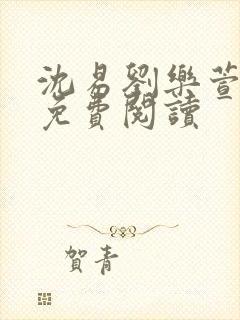 沈易劉樂萱
免費閱讀
賀青